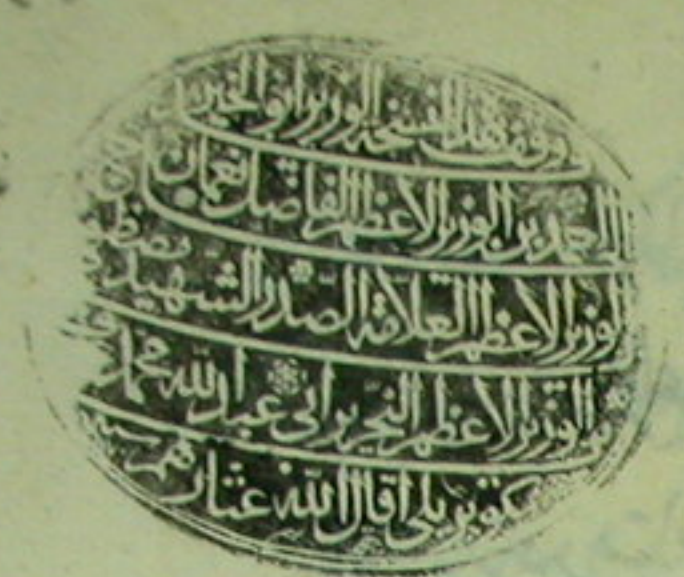 وقف هذه النسخة الوزير ابو الخير
احمد بن الوزير الاعظم الفاضل نعمان
الوزير الاعظم العلامة الصدر الشهيد مصطفى
بن الوزير الاعظم النحرير ابى عبد الله محمد
كوپريلى اقال الله عثارهم